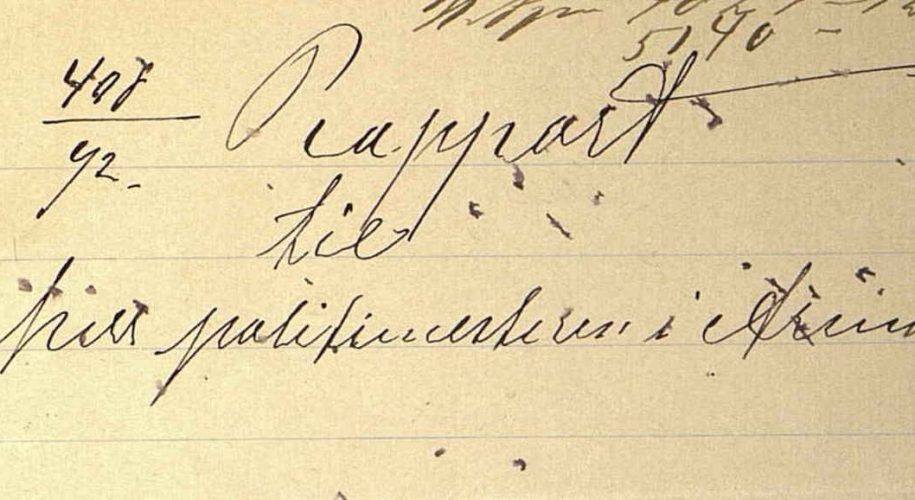 5140 –
408
92.
Rapport
til
hrr politimesteren i